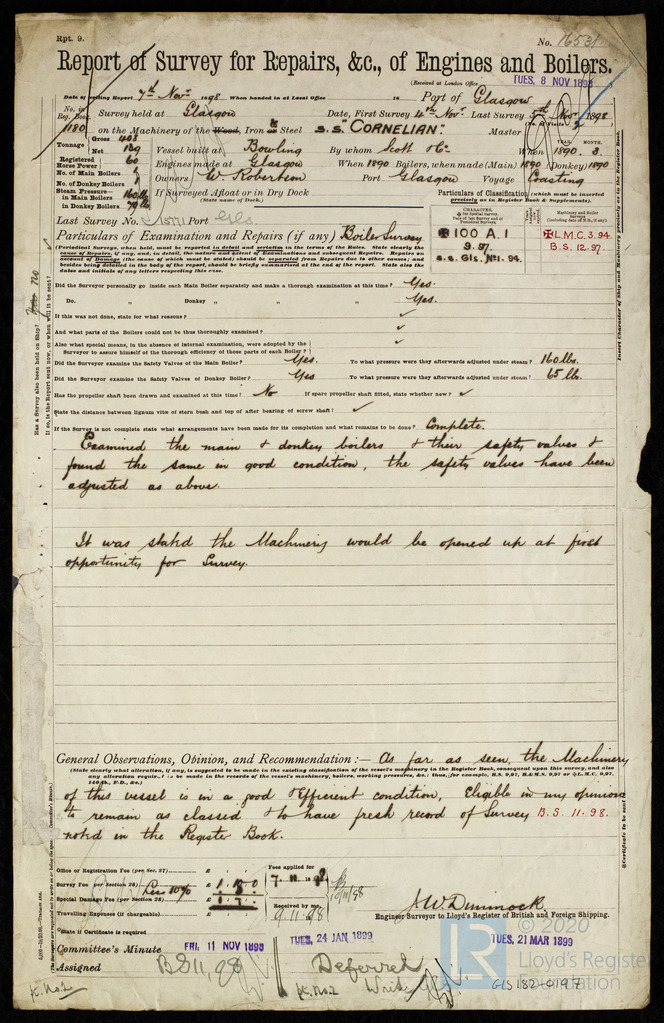 Rpt. 9.
No. 16531
Report of Survey for Repairs, &c., of Engines and Boilers.
(Received at London Office
TUES. 8 NOV 1898
Date of writing Report 7th Novr. 1898 When handed in at Local Office 18 Port of Glasgow
No. in Reg. Book. Survey held at Glasgow Date, First Survey 4th Novr. Last Survey 5th Novr. 1898
1180 on the Machinery of the Wood, Iron or Steel S.S. "CORNELIAN" Master
Tonnage Gross 403 Net 139
Vessel built at Bowling By whom Scott & Co. When 1890. 3.
Registered Horse Power 60 Engines made at Glasgow When 1890 Boilers, when made (Main) 1890 (Donkey) 1890
No. of Main Boilers
No. of Donkey Boilers
Owners W. Robertson Port Glasgow Voyage Coasting
Steam Pressure in Main Boilers 160 lb. in Donkey Boilers
If Surveyed Afloat or in Dry Dock
(State name of Dock.)
Particulars of Classification (which must be inserted precisely as in Register Book & Supplements).
Last Survey No. Port Gls.
Particulars of Examination and Repairs (if any) Boiler Survey
✠ 100 A.1
9.97.
S.S. Gls. No. 1. 94.
✠ L.M.C. 3.94
B.S. 12.97.
(Periodical Surveys, when held, must be reported in detail and seriatim in the terms of the Rules. State clearly the cause of Repairs, if any, and, in detail, the nature and extent of Examinations and subsequent Repairs. Repairs on account of Damage (the cause of which must be stated) should be separated from Repairs due to other causes; and besides being detailed in the body of the report, should be briefly summarised at the end of the report. State also the dates and initials of any letters respecting this case.
Did the Surveyor personally go inside each Main Boiler separately and make a thorough examination at this time? Yes.
Do. „ Donkey „ „ „ Yes.
If this was not done, state for what reasons? ✓
And what parts of the Boilers could not be thus thoroughly examined? ✓
Also what special means, in the absence of internal examination, were adopted by the Surveyor to assure himself of the thorough efficiency of these parts of each Boiler? ✓
Did the Surveyor examine the Safety Valves of the Main Boiler? Yes. To what pressure were they afterwards adjusted under steam? 160 lbs.
Did the Surveyor examine the Safety Valves of Donkey Boiler? Yes To what pressure were they afterwards adjusted under steam? 65 lb.
Has the propeller shaft been drawn and examined at this time? No If spare propeller shaft fitted, state whether new? ✓
State the distance between lignum vitæ of stern bush and top of after bearing of screw shaft? ✓
If the Survey is not complete state what arrangements have been made for its completion and what remains to be done? Complete.
Examined the main & donkey boilers & their safety valves &
found the same in good condition, the safety valves have been
adjusted as above.
It was stated the Machinery would be opened up at first
opportunity for Survey.
General Observations, Opinion, and Recommendation:— As far as seen, the Machinery
(State clearly what alteration, if any, is suggested to be made in the existing classification of the vessel's machinery in the Register Book, consequent upon this survey, and also any alteration required to be made in the records of the vessel's machinery, boilers, working pressures, &c.: thus, for example, B.S. 9,97, B.&M.S. 9,97 or ✠L.M.C. 9,97, 140 lb., F.D., &c.)
of this vessel is in a good & efficient condition, Eligible in my opinion
to remain as classed & to have fresh record of Survey B.S. 11.98.
noted in the Register Book.
Office or Registration Fee (per Sec. 27)... £ : :
Survey Fee (per Section 28) Less 10% £
Special Damage Fee (per Section 28) £
Travelling Expenses (if chargeable) £ : :
Fees applied for
7.11.98
Received by me,
9.11.98
10/11/98
A.W. Dimmock
Engineer Surveyor to Lloyd's Register of British and Foreign Shipping.
*State if Certificate is required
Committee's Minute FRI. 11 NOV 1898 TUES. 24 JAN 1899 TUES. 21 MAR 1899
Assigned BS 11,98 Deferred
Write
© 2020
Lloyd's Register
Foundation
GLS 182-0197